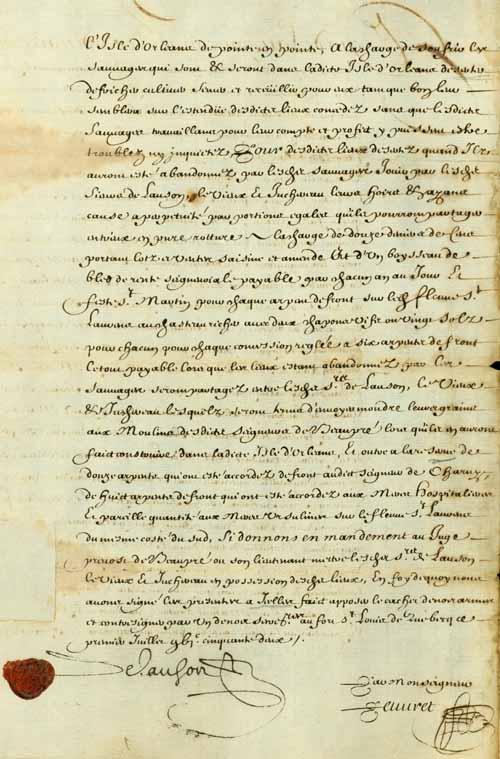 L'Isle d'Orleans de pointe en pointe, A la charge de souffrir les
sauvages qui sont & seront dans ladicte Isle d'Orleans deserter
defricher cultiver semer et recueillir pour eux tant que bon leur
semblera sur l'estendüe desdicts lieux concedez sans que lesdicts
sauvages travaillant pour leur compte et proffit y puissent estre
troublez ny inquietez Pour desdicts lieux desertez quand Ilz
auront esté abandonnez par lesdits sauvages Jouir par lesdits
Sieurs de Lauson, le Vieux Et Juchereau leurs hoirs & ayans
cause a perpetuité par portions egales qu'ils pourront partager
entr'eux en pure rotture A la charge de douze deniers de Cens
portant lotz et ventes saisine et amende Et d'Un boysseau de
bled de rente seigneuriale payable par chacun an au Jour Et
feste St. Martin pour chaque arpent de front sur ledit fleuve St.
Laurens au chasteau richer avec deux chapons vifs ou vingt solz
pour chacun pour chaque concession reglée a six arpents de front
le tout payable lors que les lieux estant abandonnez par les
sauvages seront partagez entre lesdits Srs. de Lauson, le Vieux
& Juchereau lesquelz seront tenus d'envoyer moudre leurs grains
aux Moulins desdicts seigneurs de Beaupré lors qu'ils en auront
faict construire dans ladicte Isle d'Orleans, Et outre a la reserve de
douze arpents qui ont esté accordez de front audict seigneur de Charny,
de huict arpents de front qui ont esté accordez aux Meres hospitalieres
Et pareille quantité aux Meres Ursulines sur le fleuve St. Laurens
du mesme costé du sud, Si donnons en mandement au Juge
prevost de Beaupré ou son lieutenant mettre lesdits Srs. de Lauson
le Vieux Et Juchereau en possession desdits lieux, En foy de quoy nous
avons signé les presentes a Icelles faict apposer le cachet de nos armes
et contresigner par Un de nos secres. au fort St. Louis de Quebecq ce
premier Juillet gbic. cinquante deux /.
De Lauson
Par Monseigneur
Peuvret